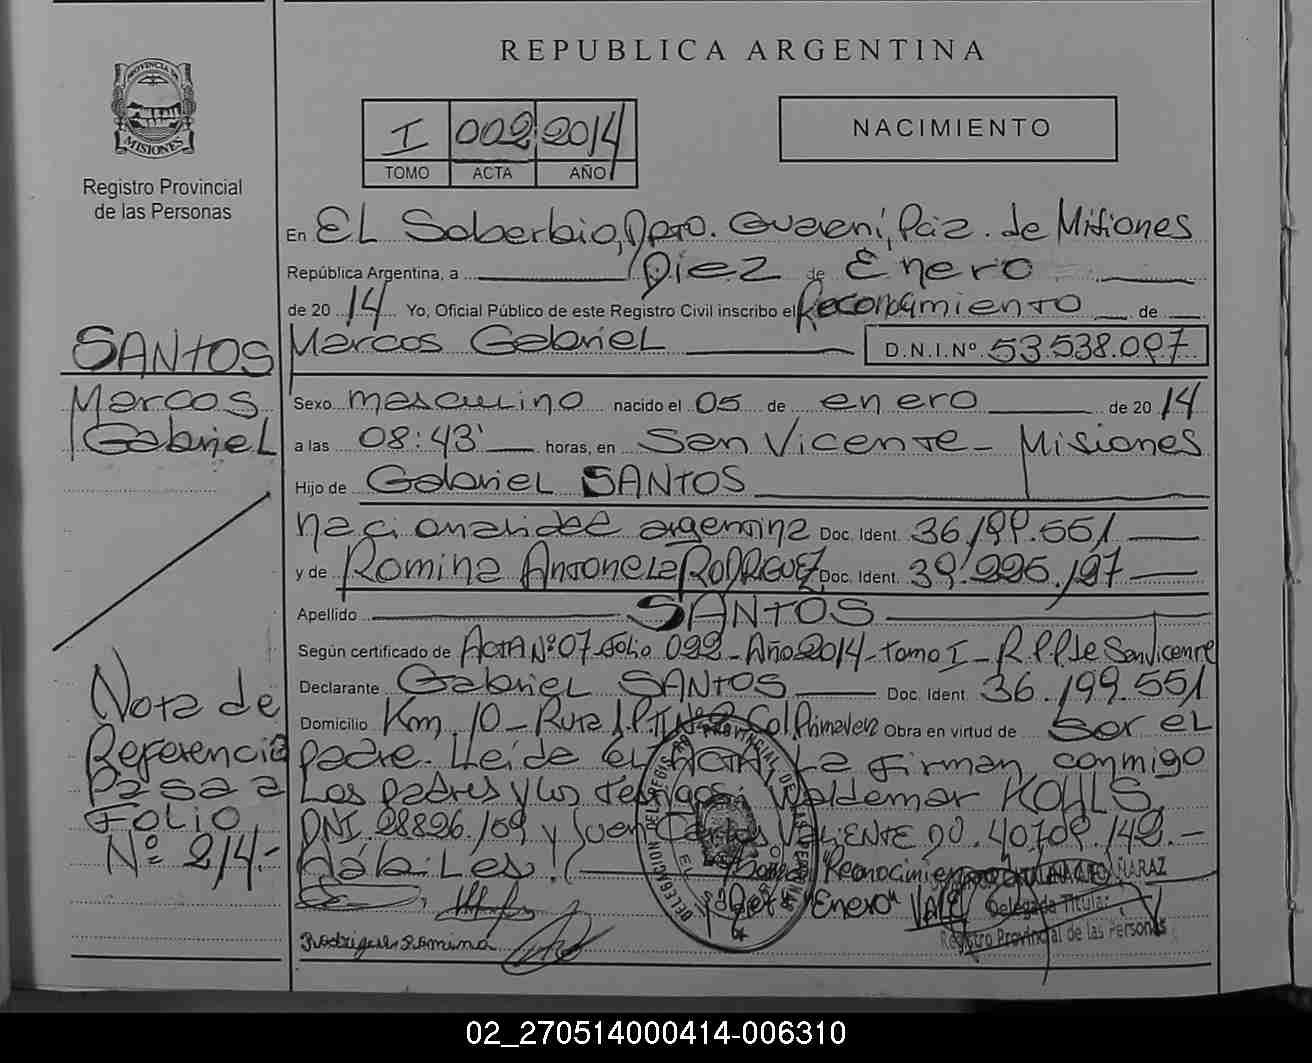 REPUBLICA ARGENTINA
PROVINCIA DE
MISIONES
Registro Provincial
de las Personas
I 002 2014
TOMO ACTA AÑO
NACIMIENTO
En EL Soberbio, Dpto. Guarani, Pcia. de Misiones
República Argentina, a Diez de Enero
de 2014 Yo, Oficial Público de este Registro Civil inscribo el Reconocimiento de
SANTOS
Marcos
Gabriel
Marcos Gabriel D.N.I.Nº 53.538.097
Sexo masculino nacido el 05 de enero de 2014
a las 08:43' horas, en San Vicente - Misiones
Hijo de Gabriel SANTOS
nacionalidad argentina Doc. Ident. 36.199.551
y de Romina Antonela RODRIGUEZ Doc. Ident. 39.226.197
Apellido SANTOS
Según certificado de Acta Nº 07 Folio 022 - Año 2014 - Tomo I - R.P.P de San Vicente
Declarante Gabriel SANTOS Doc. Ident. 36.199.551
Domicilio Km. 10 - Ruta Nº 2 Col Primavera Obra en virtud de Ser el
padre. Leída el Acta, La firman conmigo
Los padres y los testigos: Waldemar KOHLS,
DNI 28826.169 y Juan Carlos VALIENTE 40.709.149.-
Hábiles!
"Reconocimiento"
"Enero" VALE
Delegada Titular
Registro Provincial de las Personas
Rodriguez Romina
Nota de
Referencia
Pasa a
Folio
Nº 214.-
DELEGACION DEL REGISTRO PROVINCIAL DE LAS PERSONAS
02_270514000414-006310